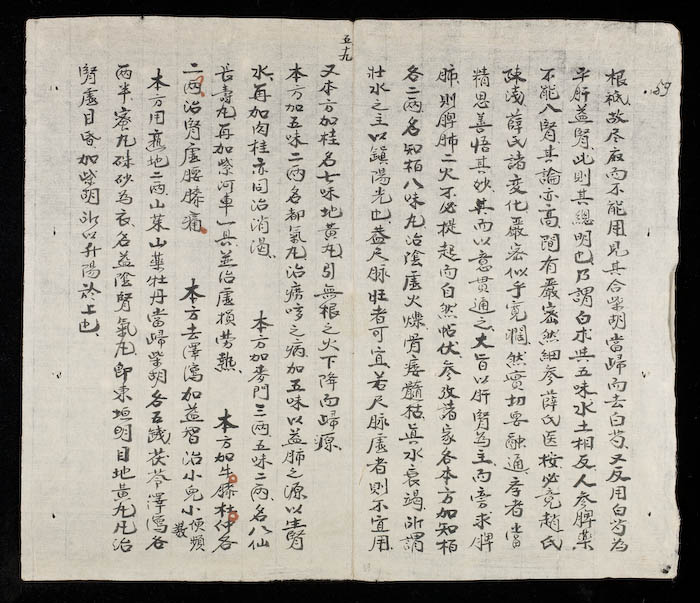 59
根祇故尽廢而不能用見其合柴胡當歸而去白芍又反用白芍為
平肝益腎此則其總明也乃謂白朮其五味水土相反人參脾藥
不能入腎其論亦高間有嚴密然細參薛氏医桉必竟趙氏
陳淺薛氏諸變化嚴密似乎寬濶然實切要融通孝者當
精思善悟其妙其而以意貫通之大旨以肝腎為主而旁求脾
肺則脾肺二火不必提起而自然帖伏參攷諸家各本方加知栢
各二両名知栢八味丸治陰虚火爍骨痿髓枯真水衰竭所謂
壮水之主以鎮陽光也蓋尺脉旺者可宜若尺脉虚者則不宜用
五九
又本方加桂名七味地黄丸引無根之火下降而歸源
本方加五味二両名都氣丸治癆咳之病加五味以益肺之源以生腎
水再加肉桂亦同治消渴 本方加麥門三両五味二両名八仙
長壽丸再加紫河車一具並治虚損勞熱 本方加牛膝杜仲各
二両治腎虚腰膝痛 本方去澤瀉加益智治小児小便頻
數
本方用熟地二両山茱山藥牡丹當歸柴胡各五錢茯苓澤瀉各
両半蜜丸硃砂為衣名益陰腎氣丸即東垣明目地黄丸凡治
腎虚目昏加柴胡所以升陽於上也